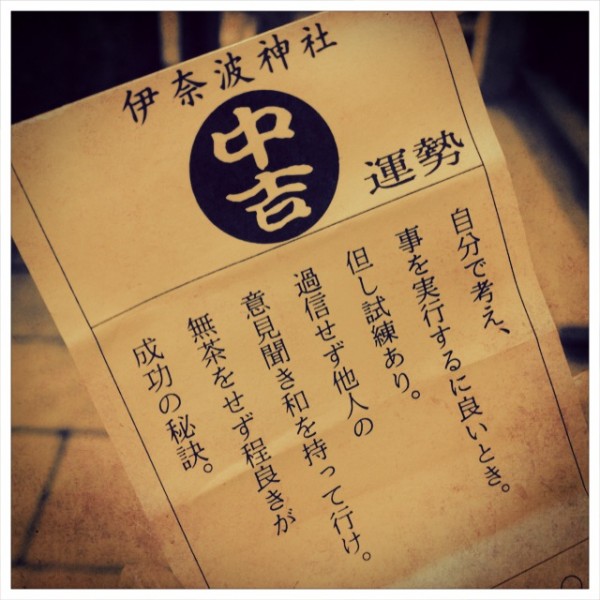 伊奈波神社
中吉
運勢
自分で考え、
事を実行するに良いとき。
但し試練あり。
過信せず他人の
意見聞き和を持って行け。
無茶をせず程良きが
成功の秘訣。